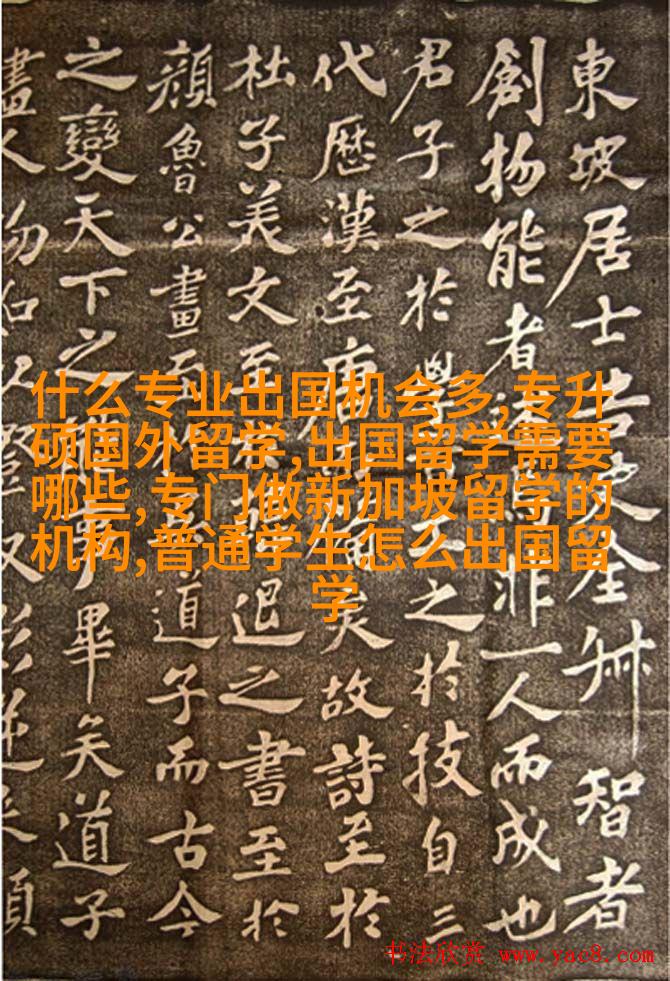 東坡居士
全
智者
創物能者
非一人而成也
君子之於學
之於技自三
代歷漢至唐
矣故詩至於
杜子美文至
退之書至於
顏魯公畫而
道子而古今
之變天下之
畢矣道子
畫人物
什么专业出国机会多,专升
硕国外留学,出国留学需要
哪些,专门做新加坡留学的
机构,普通学生怎么出国留
学
书法欣赏 www.yac8.com